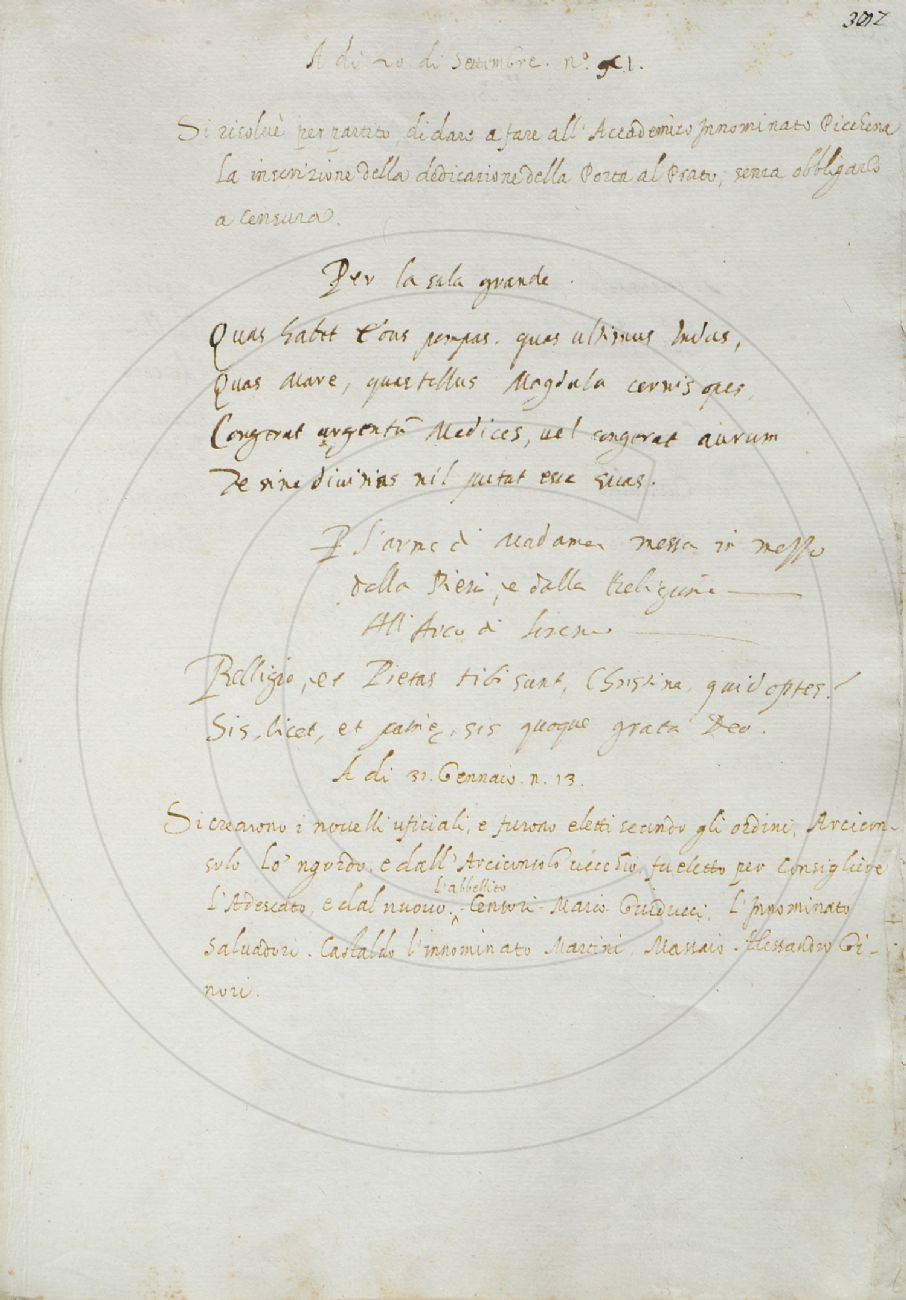 302
A di 20 di Settembre. n.º 41.
Si risolvè per partito, di dare a fare all' Accademico Innominato Picchena
la inscrizione della dedicazione della Porta al Prato, senza obbligarlo
a censura.
Per la sala grande.
Quas habet Eous pompas. quas ultimus Indus,
Quas Mare, quas tellus Magdala cernis opes,
Congerat argentū Medices, vel congerat aurum
Te sine divitias nil putat esse suas.
P l'arme di Madama messa in mezzo
dalla Pietà, e dalla Religione
All' Arco di
Relligio, et Pietas tibi sunt, Christina, quid optes?
Sis, licet, et patrię, sis quoque grata Deo.
A di 31. Gennaio. n. 13.
Si crearono i novelli uficiali, e furono eletti secondo gli ordini, Arcicon-
sulo Lo 'ngordo, e dall' Arciconsolo vecchio fu eletto per Consigliere
l'Adescato, e dal nuovo l'abbellito. Censori Mario Guiducci, l'Innominato
Salvadori. Castaldo l'innominato Martini. Massaio Alessandro Gi-
nori.